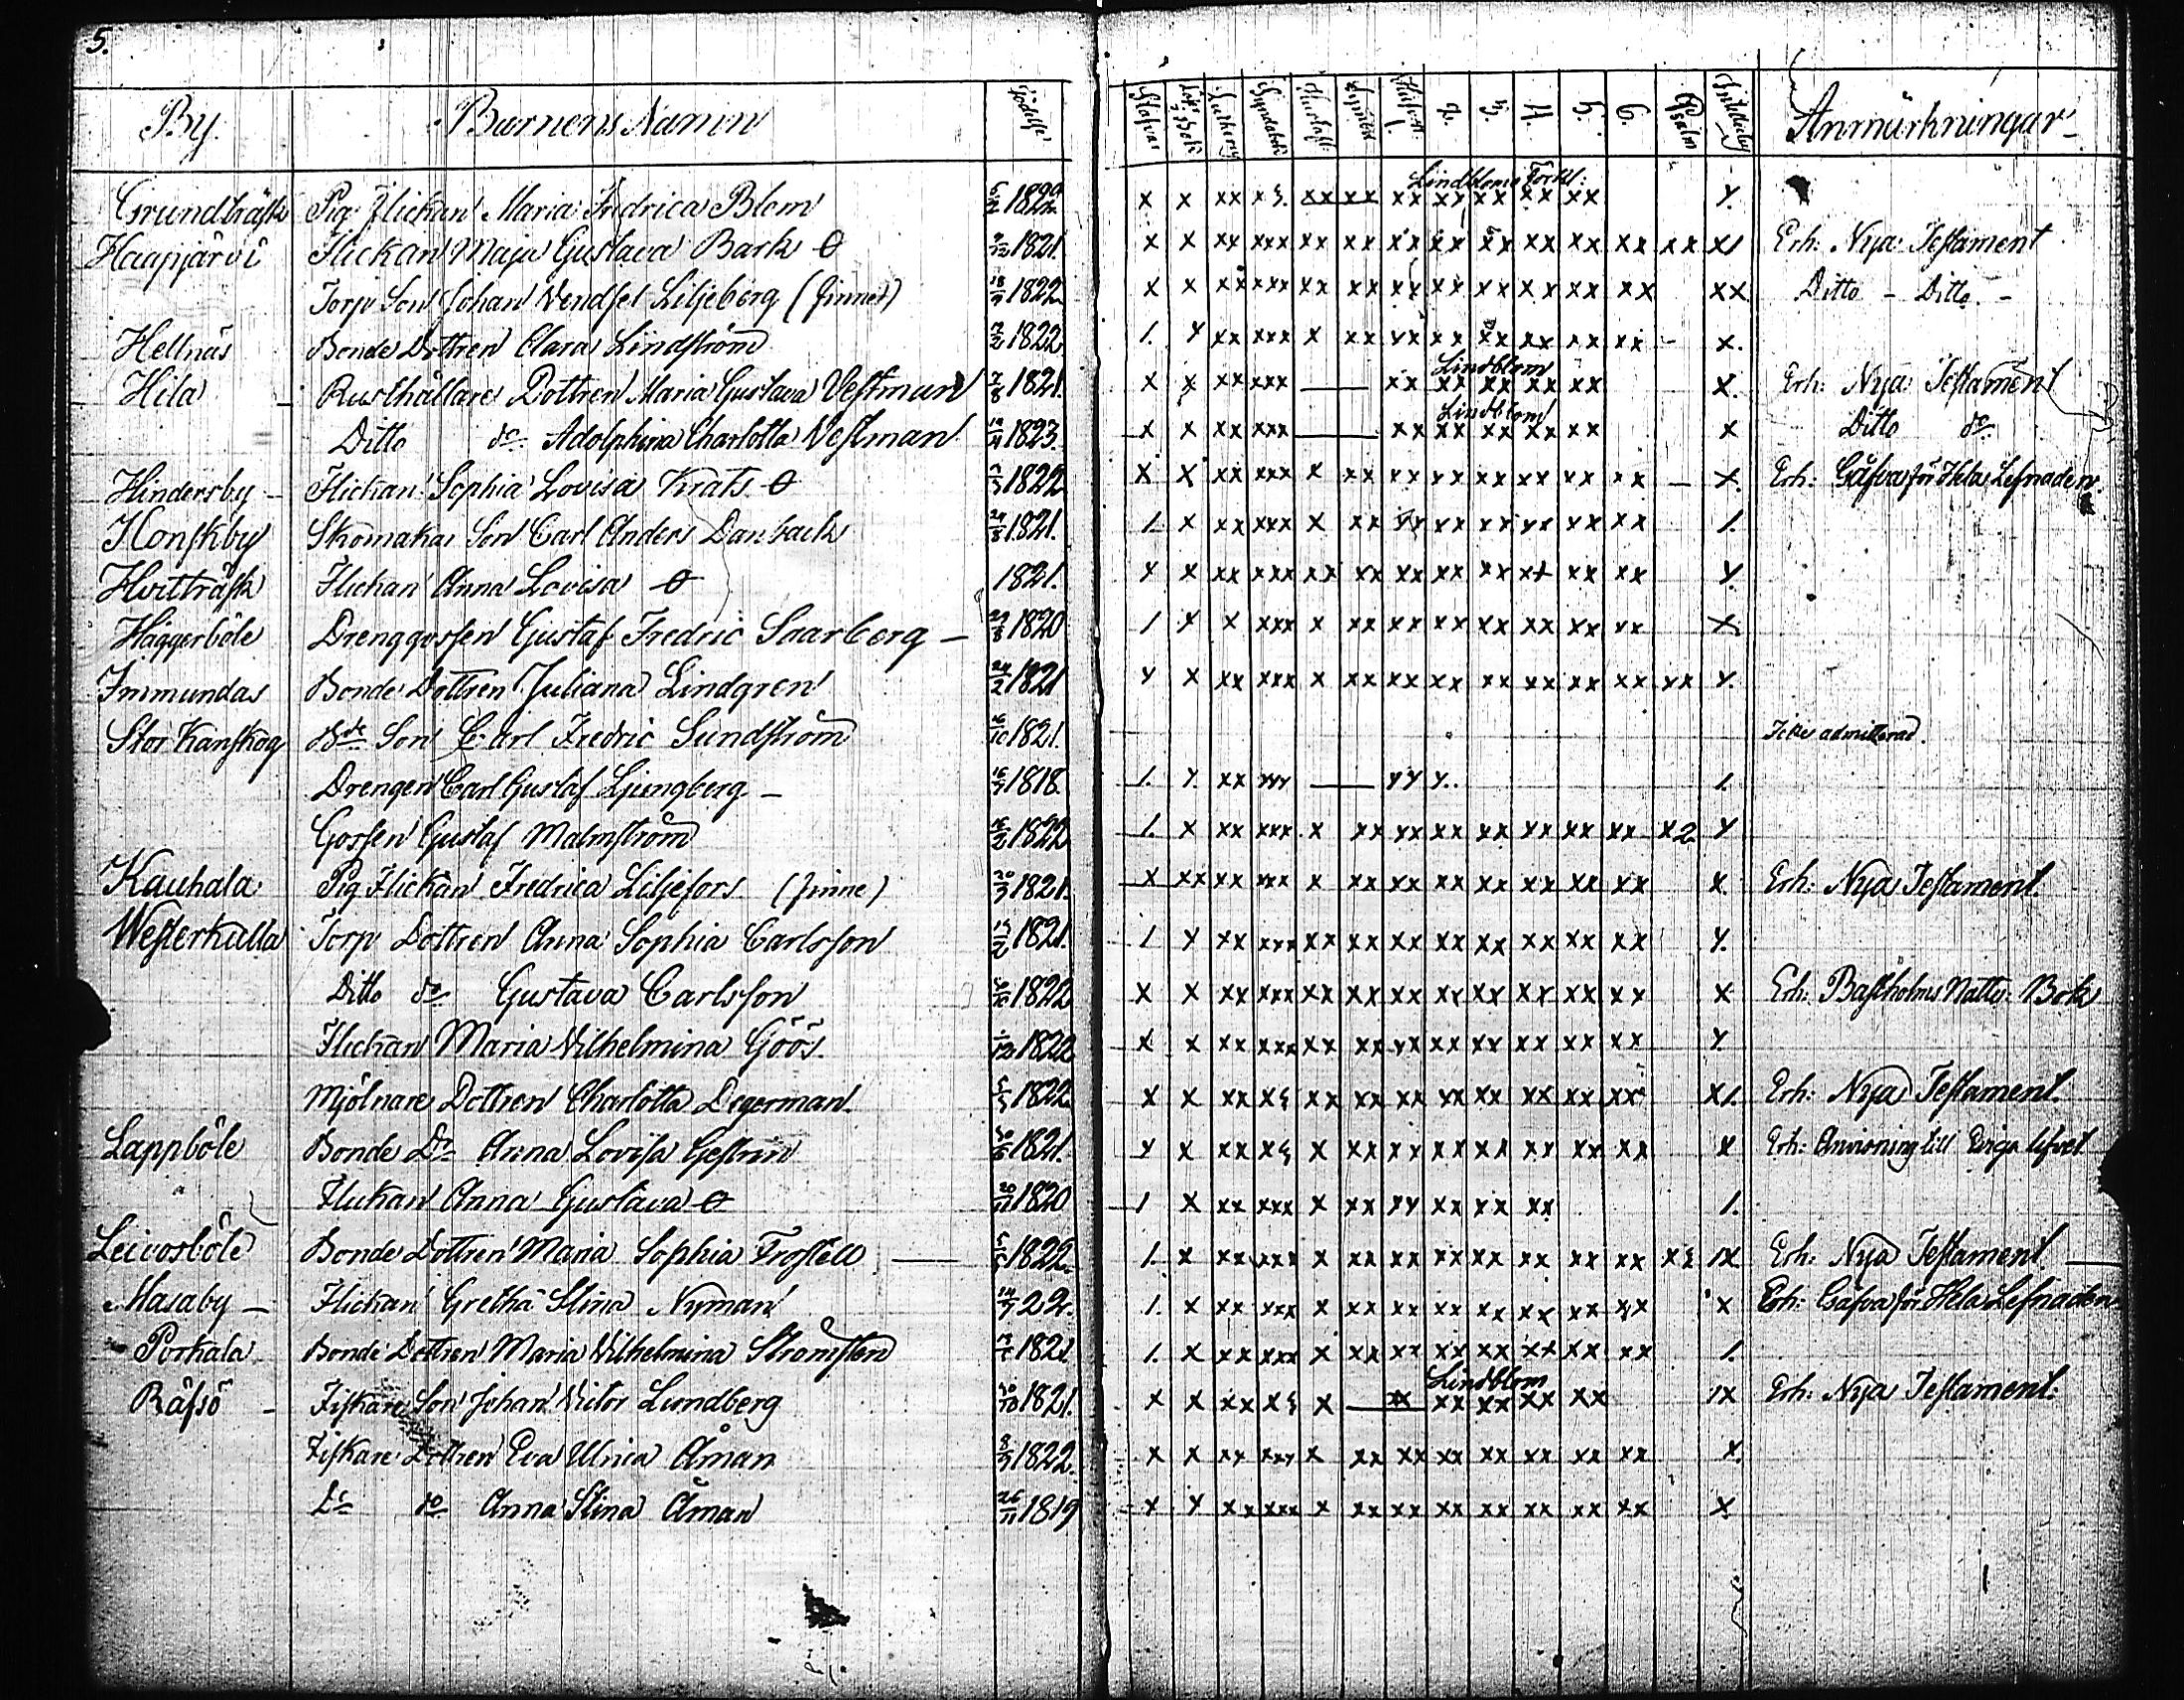 5.
By. Barnens Namn Födelse Stafvar Luthers Hustafl. 2. 3. 4. 5. 6. Psalm Anmärkningar
Lindbloms
Grundträsk Pig. Flickan Maria Fredrica Blom 1822 x x xx xx xx xx xx xx xx
Haapjärvi Flickan Maja Gustava Bark O 1821. x x xx xxx xx xx xx xx xx xx xx xx xx x1 Erh: Nya Testament
Torp. Son Johan Vendsel Liljeberg (finne) 18/9 1822 x x xx xxx xx xx xx xx xx xx xx xx xx Ditto - Ditto. -
Hellnäs Bonde Dottren Clara Lindström 1822 1. x xx xxx x xx xx xx xx xx xx xx - x.
Lindblom
Hila - Rusthållare Dottren Maria Gustava Vestman 7/8 1821. x x xx xxx — xx xx xx xx xx x. Erh: Nya Testament
Lindblom
Ditto do Adolphina Charlotta Vestman 1823. x x xx xxx — xx xx xx xx xx x Ditto do
Hindersby - Flickan Sophia Lovisa Krats O 1822 x x xx xxx x xx xx xx xx xx xx xx - x. Erh: Gåfva för Hela Lefnaden.
Honskby Skomakar Son Carl Anders Danback 1821. 1. x xx xxx x xx xx xx xx xx xx xx 1.
Hvitträsk Flickan Anna Lovisa O 1821. x x xx xxx xx xx xx xx xx xx xx xx x.
Häggerböle Drenggossen Gustaf Fredric Saarberg - 29/8 1820 1 x x xxx x xx xx xx xx xx xx xx x.
Immundas Bonde Dottren Juliana Lindgren 24/2 1821 x x xx xxx x xx xx xx xx xx xx xx xx x.
Stor Kanskog Bde Son Carl Fredric Sundström 16/10 1821. Icke admitterad.
Drengen Carl Gustaf Ljungberg - 1818. 1. x. xx xxx — xx x.. 1.
Gossen Gustaf Malmström 1822 1. x xx xxx x xx xx xx xx xx xx xx x2 x
Kauhala Pig Flickan Fredrica Liljefors (finne) 1821. x xx xx xxx x xx xx xx xx xx xx xx x Erh: Nya Testament.
Westerkulla Torp. Dottren Anna Sophia Carlsson 1821. 1 x xx xxx xx xx xx xx xx xx xx xx x.
Ditto do Gustava Carlsson 1822 x x xx xxx xx xx xx xx xx xx xx xx x Erh: Bastholms Nattv. Bok
Flickan Maria Vilhelmina Göös. 1822 x x xx xxx xx xx xx xx xx xx xx xx x.
Mjölnare Dottren Charlotta Degerman. 1822. x x xx xx xx xx xx xx xx xx xx x1. Erh: Nya Testament.
Lappböle Bonde Do Anna Lovisa Gestrin 1821. x x xx x xx xx xx xx xx xx xx x Erh: Anvisning till Eviga lifvet
Flickan Anna Gustava O 1820 1 x xx xxx x xx xx xx xx xx 1.
Leivosböle Bonde Dottren Maria Sophia Frostell — 1822. 1. x xx xxx x xx xx xx xx xx xx xx 1x Erh: Nya Testament. —
Masaby - Flickan Gretha Stina Nyman 22. 1. x xx xxx x xx xx xx xx xx xx xx x Erh: Gåfva för Hela Lefnaden.
Porkala Bonde Dottren Maria Vilhelmina Strömsten 1821 1. x xx xxx x xx xx xx xx xx xx xx 1.
Lindblom
Räfsö - Fiskare Son Johan Victor Lundberg 1821. x x xx x — xx xx xx xx xx 1x Erh: Nya Testament.
Fiskare Dottren Eva Ulrica Åman 8/9 1822. x x xx xxx x xx xx xx xx xx xx xx x.
Do do Anna Stina Åman 26/11 1819 x x xx xxx x xx xx xx xx xx xx xx x.